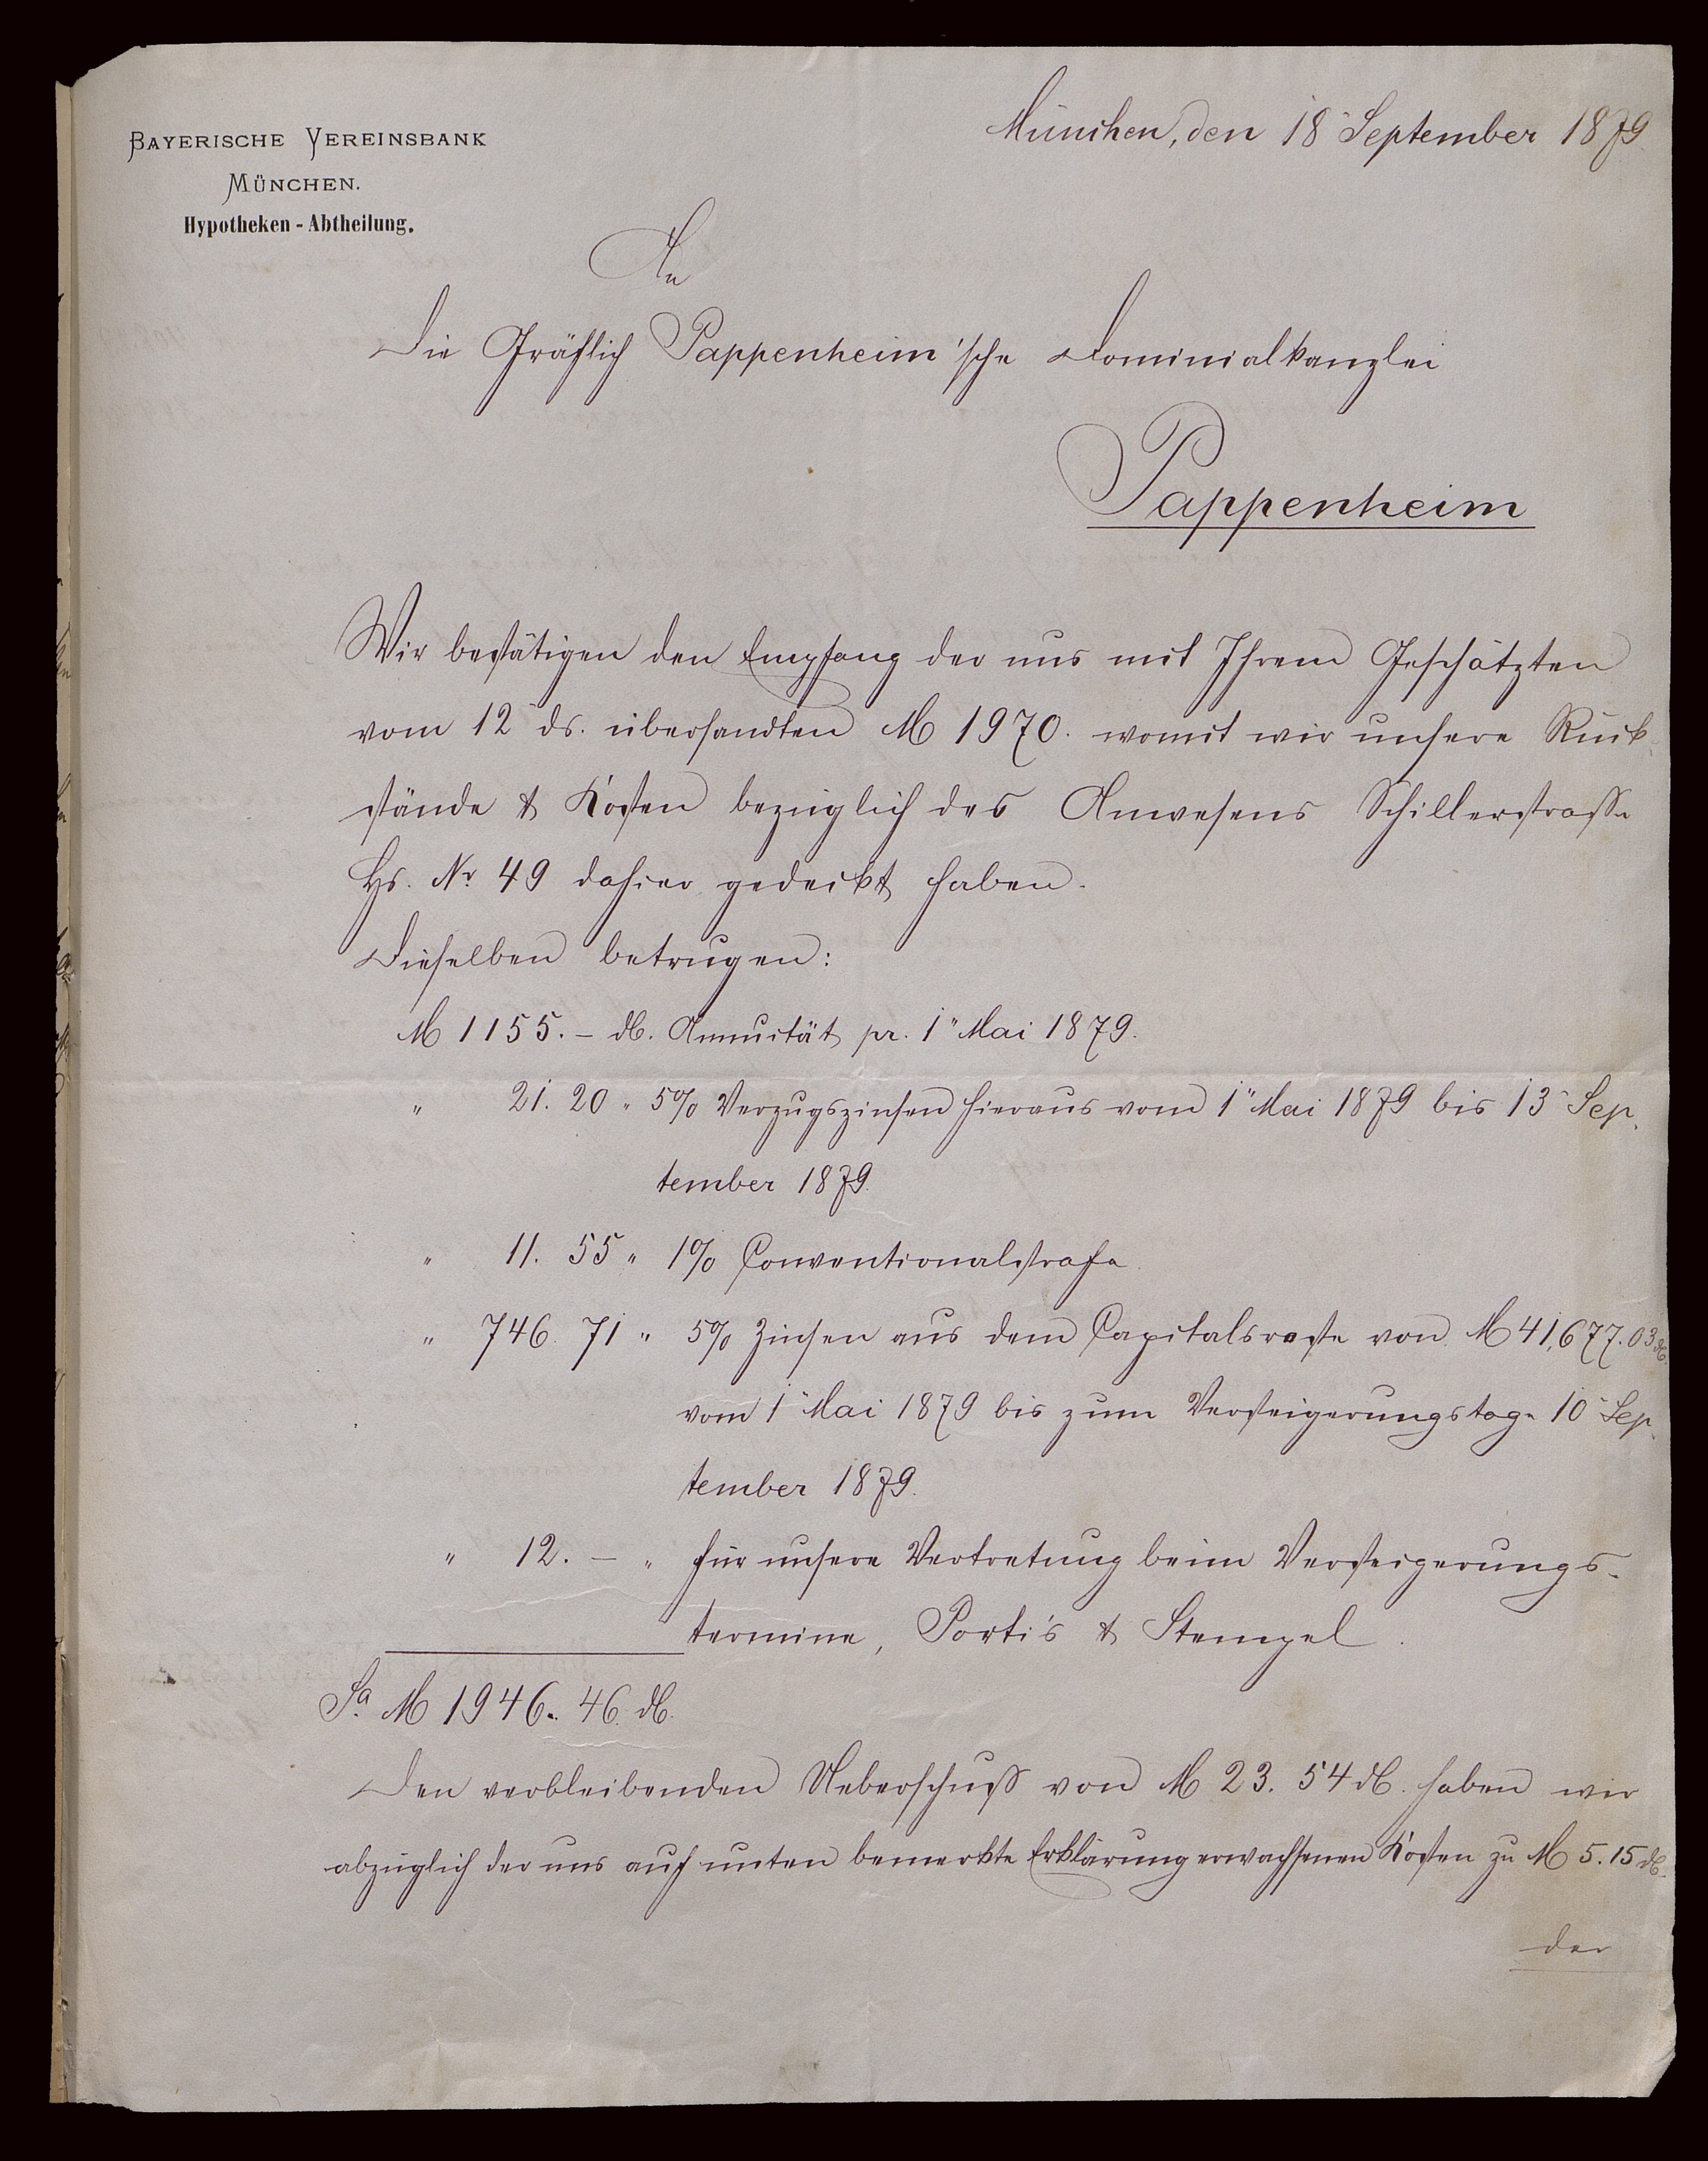 BAYERISCHE VEREINSBANK
MÜNCHEN.
Hypotheken-Abtheilung.
München, den 18 September 1879.
An
Die Gräflich Pappenheim'sche Dominialkanzlei
Pappenheim
Wir bestätigen den Empfang der uns mit Ihrem Geschätzten
vom 12 ds. übersandten M 1970. womit wir unsere Rück-
stände & Kosten bezüglich des Anwesens Schillerstrasse
Hs. Nr. 49 dahier gedeckt haben.
Dieselben betrugen:
M 1155. – ₰. Annuität pr. 1" Mai 1879.
" 21. 20 " 5% Verzugszinsen hieraus vom 1" Mai 1879 bis 13" Sep-
tember 1879.
" 11. 55 " 1% Conventionalstrafe.
" 746. 71 " 5% Zinsen aus dem Capitalsreste von M 41,677.03 ₰.
vom 1" Mai 1879 bis zum Versteigerungstage 10" Sep-
tember 1879.
" 12. – " für unsere Vertretung beim Versteigerungs-
termine, Porti's & Stempel.
Sa. M 1946. 46 ₰.
Den verbleibenden Ueberschuss von M 23. 54 ₰. haben wir
abzüglich der uns auf unten bemerkte Erklärung erwachsenen Kosten zu M 5.15 ₰.
der